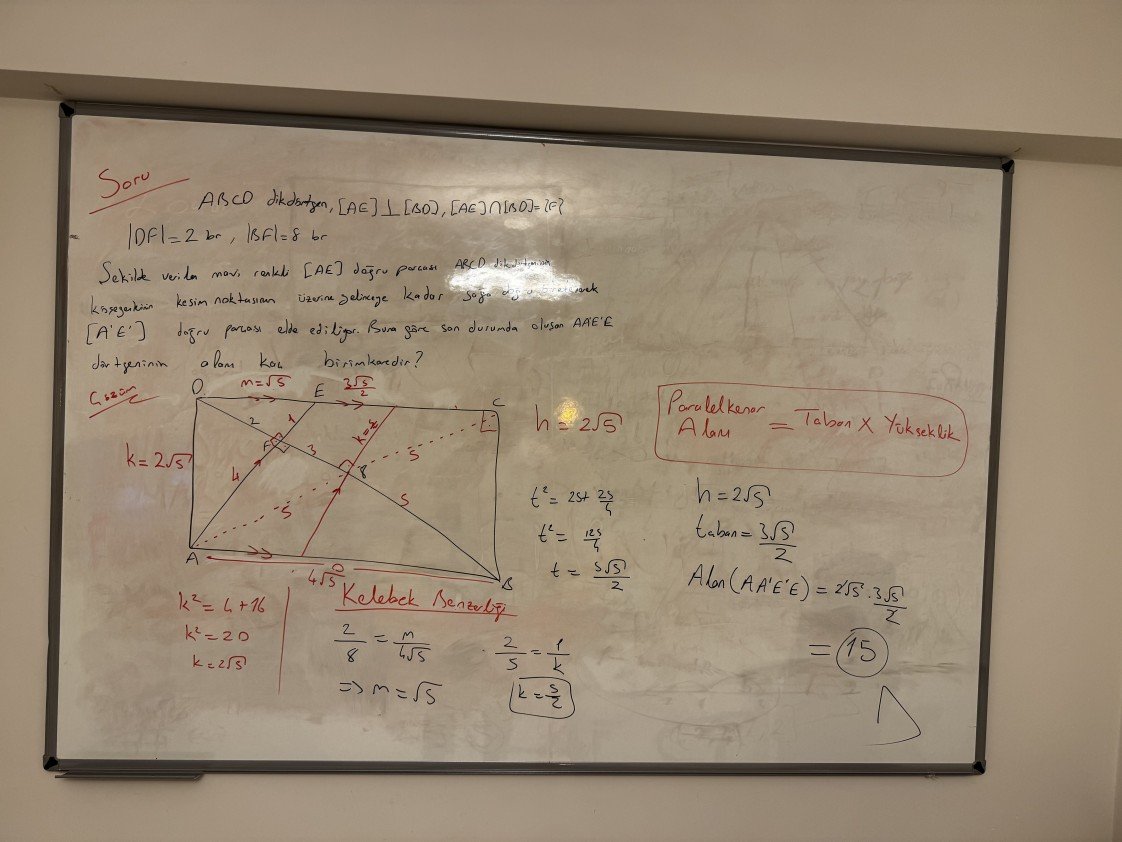 Soru
ABCD dikdörtgen, [AE]⊥[BD], [AE]∩[BD]={F}
|DF|=2 br, |BF|=8 br
Şekilde verilen mavi renkli [AE] doğru parçası ABCD
köşegenlerinin kesim noktasının üzerine gelinceye kadar sağa doğru
[A'E'] doğru parçası elde ediliyor. Buna göre son durumda oluşan AA'E'E
dörtgeninin alanı kaç birimkaredir?
Çözüm
D m=√5 E 3√5/2 C
2 1
F 3 5
k=2√5 4
5 5
A B
4√5
h=2√5
Paralelkenar Alanı = Taban X Yükseklik
t²=25+25/4
t²=125/4
t=5√5/2
h=2√5
taban=3√5/2
Alan(AA'E'E)=2√5.3√5/2
=15
k²=4+16
k²=20
k=2√5
Kelebek Benzerliği
2/8=m/4√5
=>m=√5
2/5=1/k
k=5/2